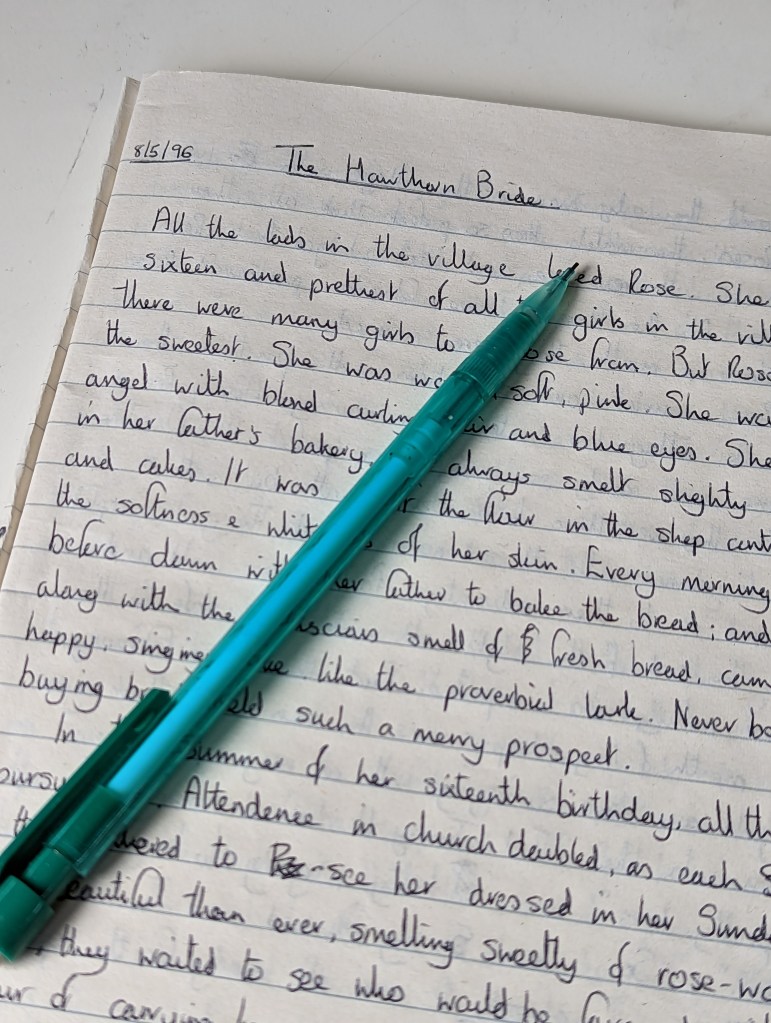 8/5/96
The Hawthorn Bride.
All the lads in the village loved Rose. She
sixteen and prettiest of all girls in the
there were many girls to from. But Rose
the sweetest. She was soft, pink. She
angel with blond and blue eyes. She
in her father's bakery, always smelt slightly
and cakes. It was the flour in the shop
the softness & of her skin. Every morning
before dawn father to bake the bread; and
along with the smell of fresh bread, came
happy. like the proverbial lark. Never
buying such a merry prospect.
In summer of her sixteenth birthday, all
Attendence in church doubled, as each
to see her dressed in her
than ever, smelling sweetly of
they waited to see who would be
of carrying